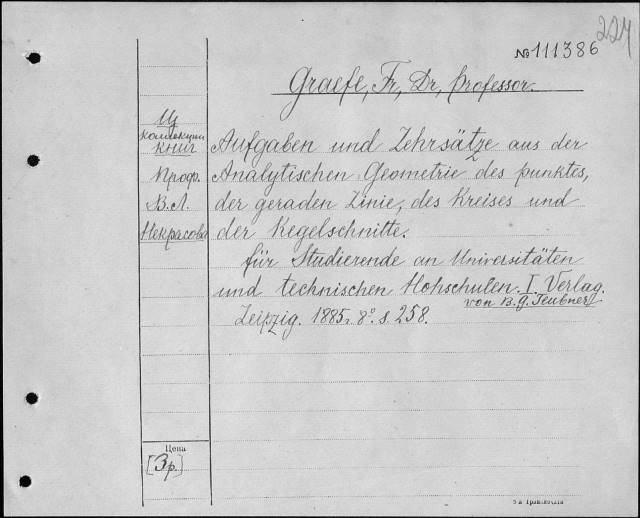 224
№111386
Graefe, Fr, Dr, professor.
Из
коллекции
книг
Проф.
В.Л.
Некрасова
Aufgaben und Lehrsätze aus der
Analytischen Geometrie des punktes,
der geraden Linie, des Kreises und
der Kegelschnitte.
für Studierende an Universitäten
und technischen Hohschulen. I Verlag.
von B.G. Teubner
Leipzig. 1885г. 8° s. 258.
Цена
[3р.]